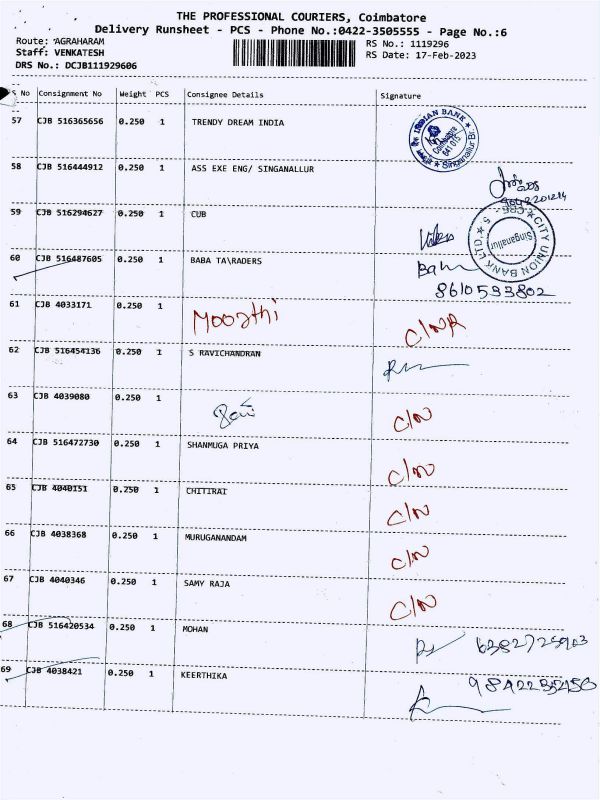 THE PROFESSIONAL COURIERS, Coimbatore
Delivery Runsheet - PCS - Phone No.:0422-3505555 - Page No.:6
Route: AGRAHARAM
Staff: VENKATESH
DRS No.: DCJB111929606
RS No.: 1119296
RS Date: 17-Feb-2023
S No Consignment No Weight PCS Consignee Details Signature
57 CJB 516365656 0.250 1 TRENDY DREAM INDIA
INDIAN BANK
Coimbatore
641 015
Singanallur Br.
58 CJB 516444912 0.250 1 ASS EXE ENG/ SINGANALLUR
59 CJB 516294627 0.250 1 CUB
CITY UNION BANK LTD.
Singanallur
CBE - 5
60 CJB 516487605 0.250 1 BABA TA\RADERS
8610533802
61 CJB 4033171 0.250 1 Moorthi C/NR
62 CJB 516454136 0.250 1 S RAVICHANDRAN
63 CJB 4039080 0.250 1 C/N
64 CJB 516472730 0.250 1 SHANMUGA PRIYA C/N
65 CJB 4040151 0.250 1 CHITIRAI C/N
66 CJB 4038368 0.250 1 MURUGANANDAM C/N
67 CJB 4040346 0.250 1 SAMY RAJA C/N
68 CJB 516420534 0.250 1 MOHAN
69 CJB 4038421 0.250 1 KEERTHIKA